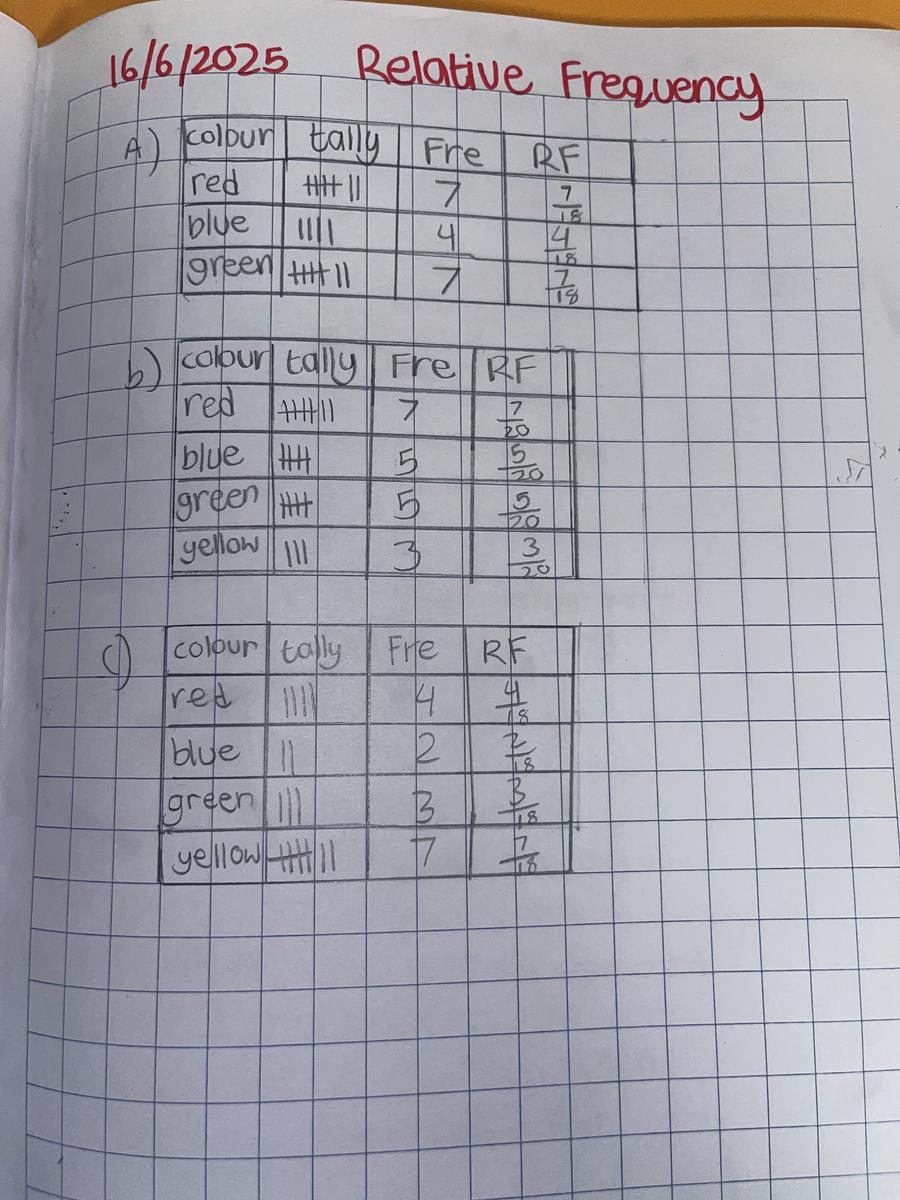 16/6/2025 Relative Frequency
A) colour tally Fre RF
red 𝍸 || 7 7/18
blue |||| 4 4/18
green 𝍸 || 7 7/18
b) colour tally Fre RF
red 𝍸 || 7 7/20
blue 𝍸 5 5/20
green 𝍸 5 5/20
yellow ||| 3 3/20
c) colour tally Fre RF
red |||| 4 4/18
blue || 2 2/18
green ||| 3 3/18
yellow 𝍸 || 7 7/18